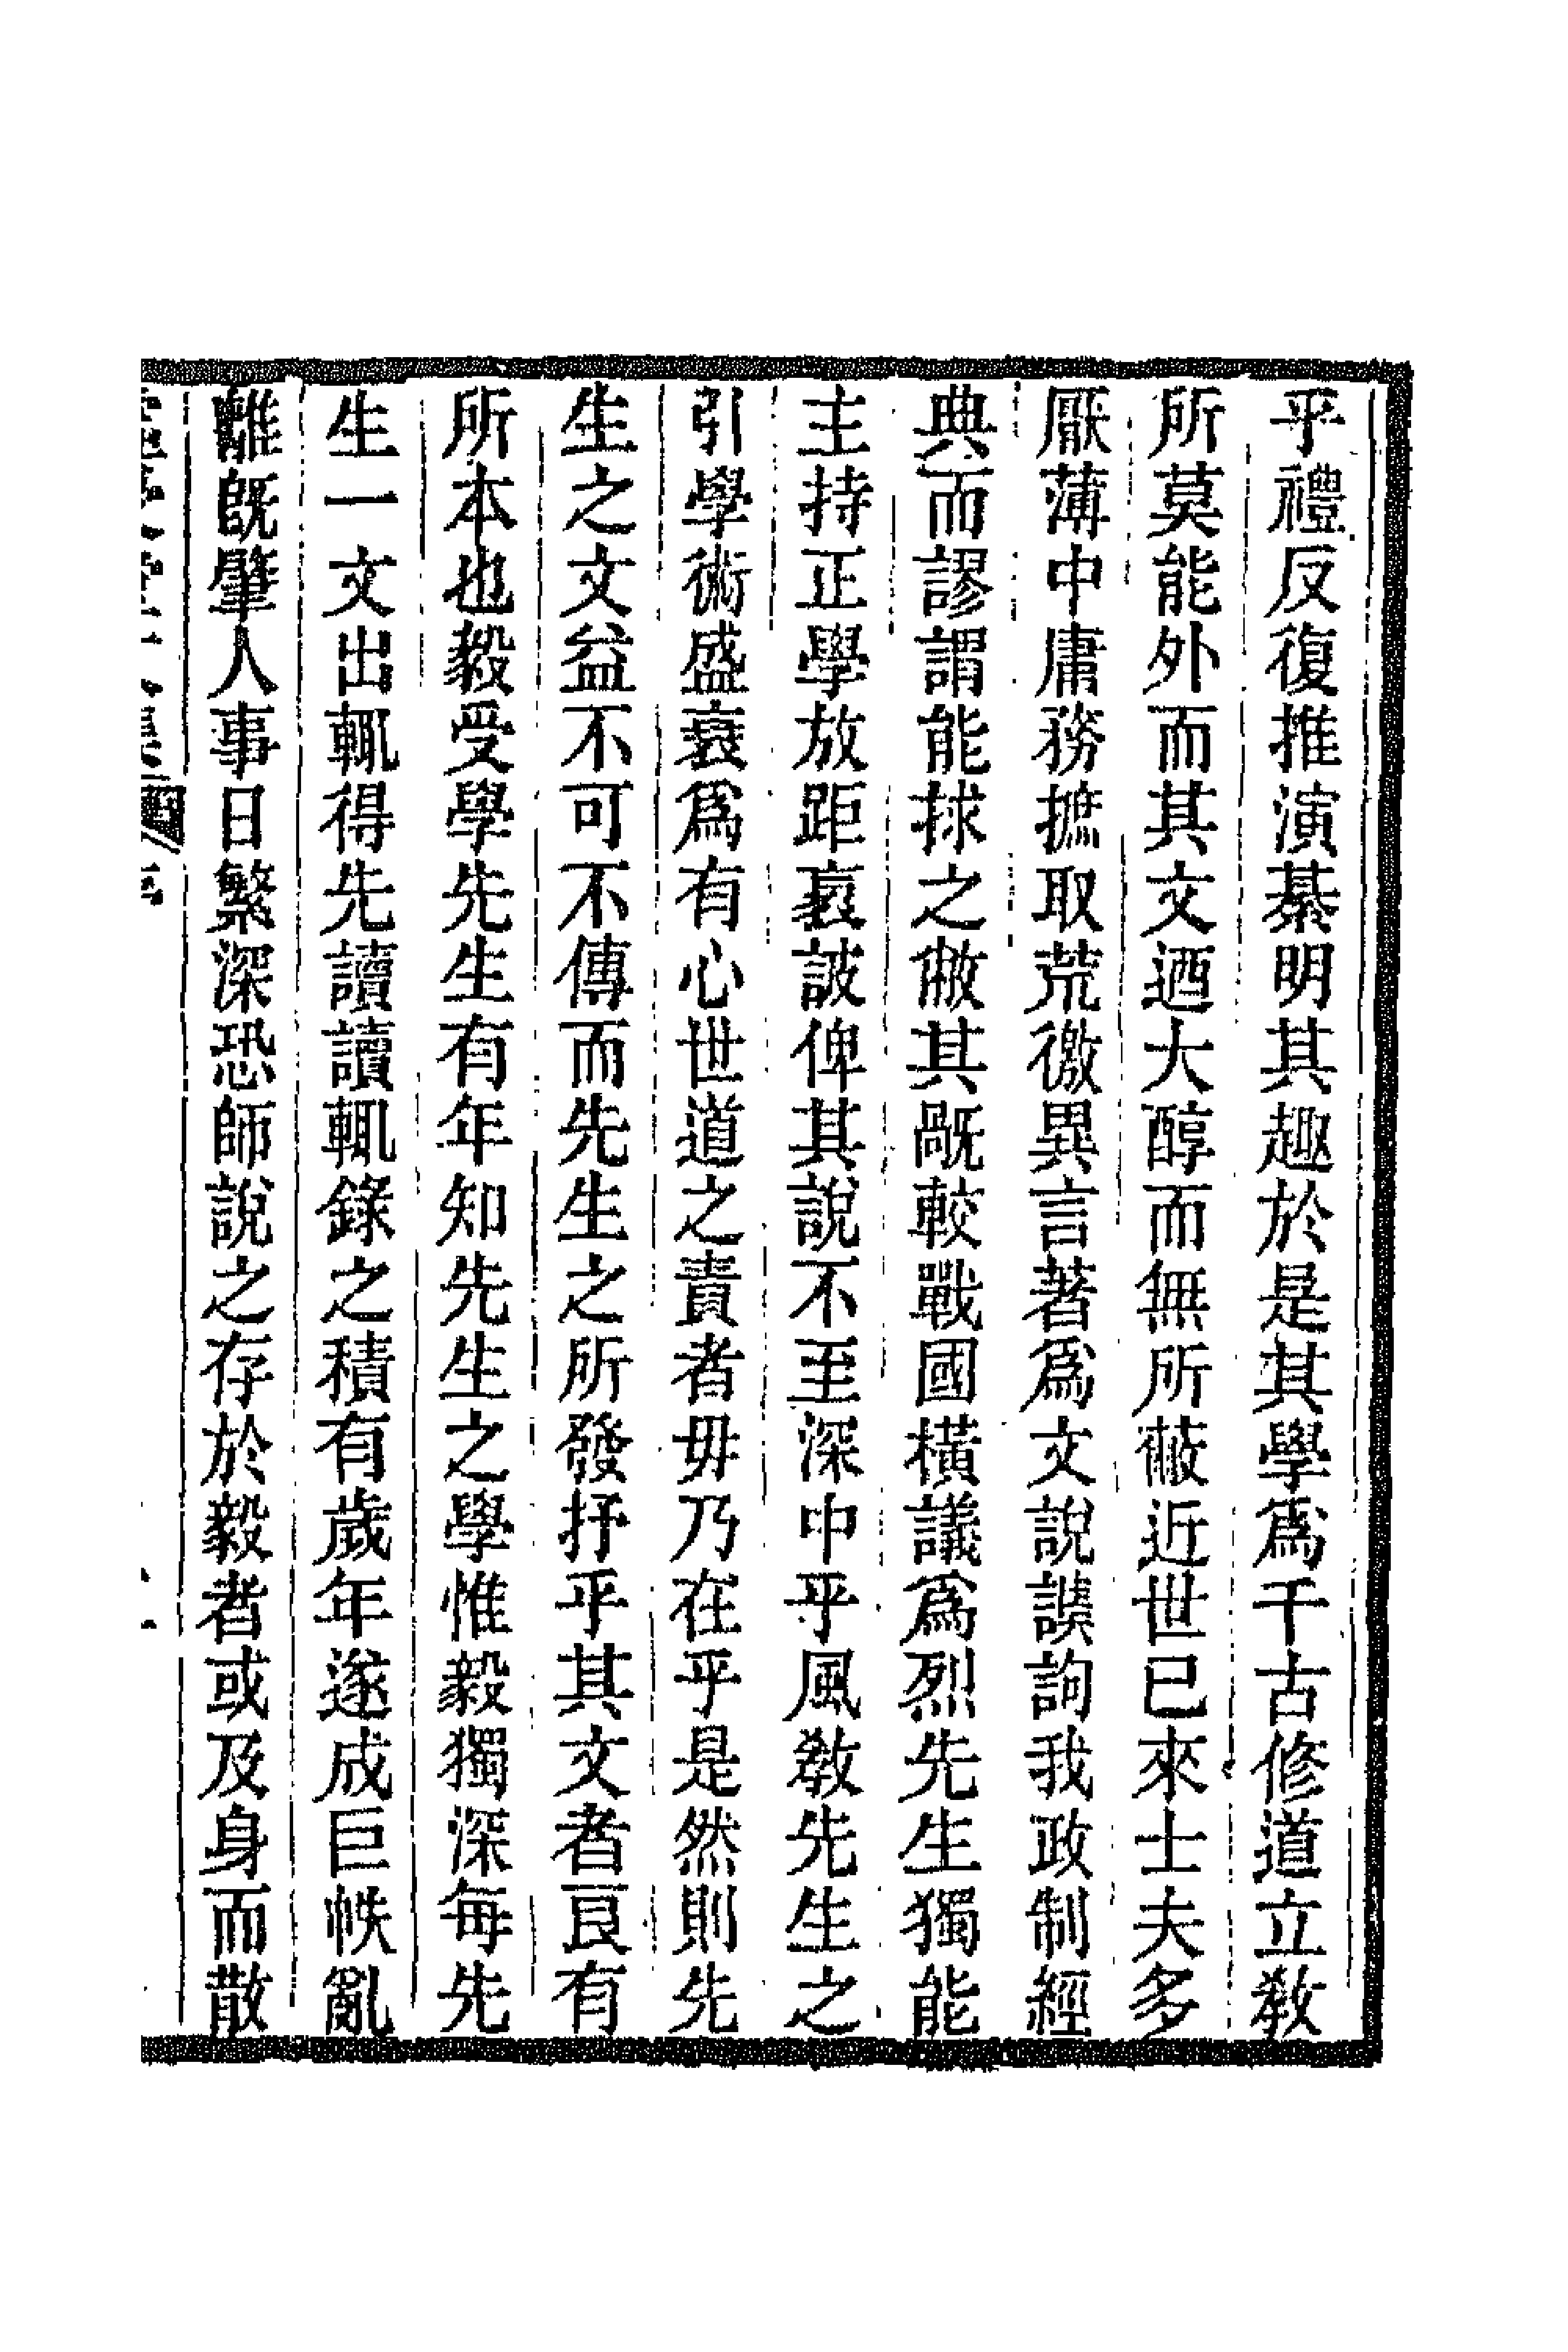 乎禮反復推演綦明其趣於是其學爲千古修道立敎
所莫能外而其文迺大醇而無所蔽近世已來士夫多
厭薄中庸務摭取荒徼異言著爲文說謨詢我政制經
典而謬謂能捄之敝其敝較戰國橫議爲烈先生獨能
主持正學放距裵詖俾其說不至深中乎風敎先生之
引學術盛衰爲有心世道之責者毋乃在乎是然則先
生之文益不可不傳而先生之所發抒乎其文者良有
所本也毅受學先生有年知先生之學惟毅獨深每先
生一文出輒得先讀讀輒錄之積有歲年遂成巨帙亂
離旣肇人事日繁深恐師說之存於毅者或及身而散